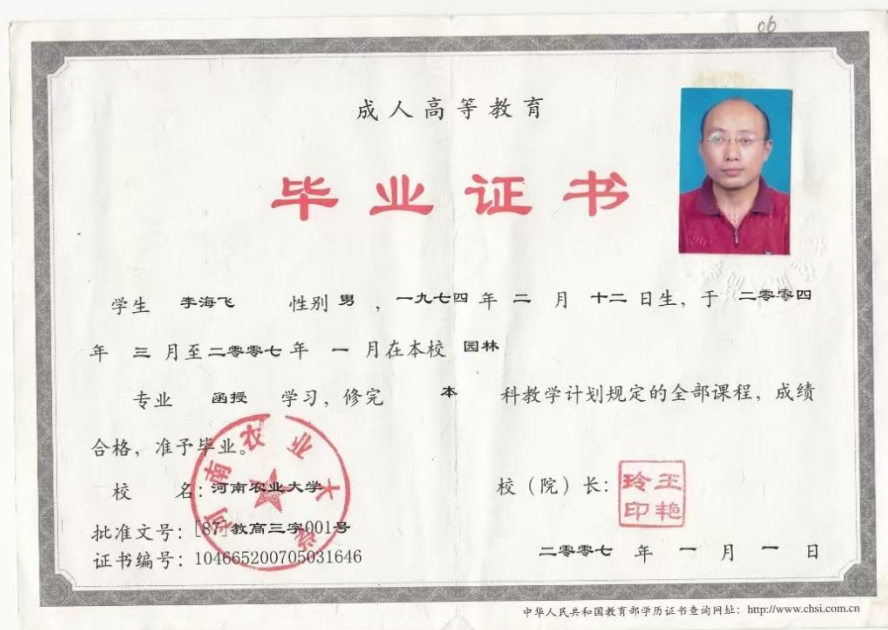 06
成人高等教育
毕业证书
学生 李海飞 性别 男 ,一九七四 年 二 月 十二 日生,于 二零零四
年 三 月至 二零零七 年 一 月在本校 园林
专业 函授 学习,修完 本 科教学计划规定的全部课程,成绩
合格,准予毕业。
校 名:河南农业大学
校(院)长:
王艳玲印
批准文号:[87]教高三字001号
证书编号:104665200705031646
二零零七 年 一 月 一 日
河南农业大学
中华人民共和国教育部学历证书查询网址:http://www.chsi.com.cn